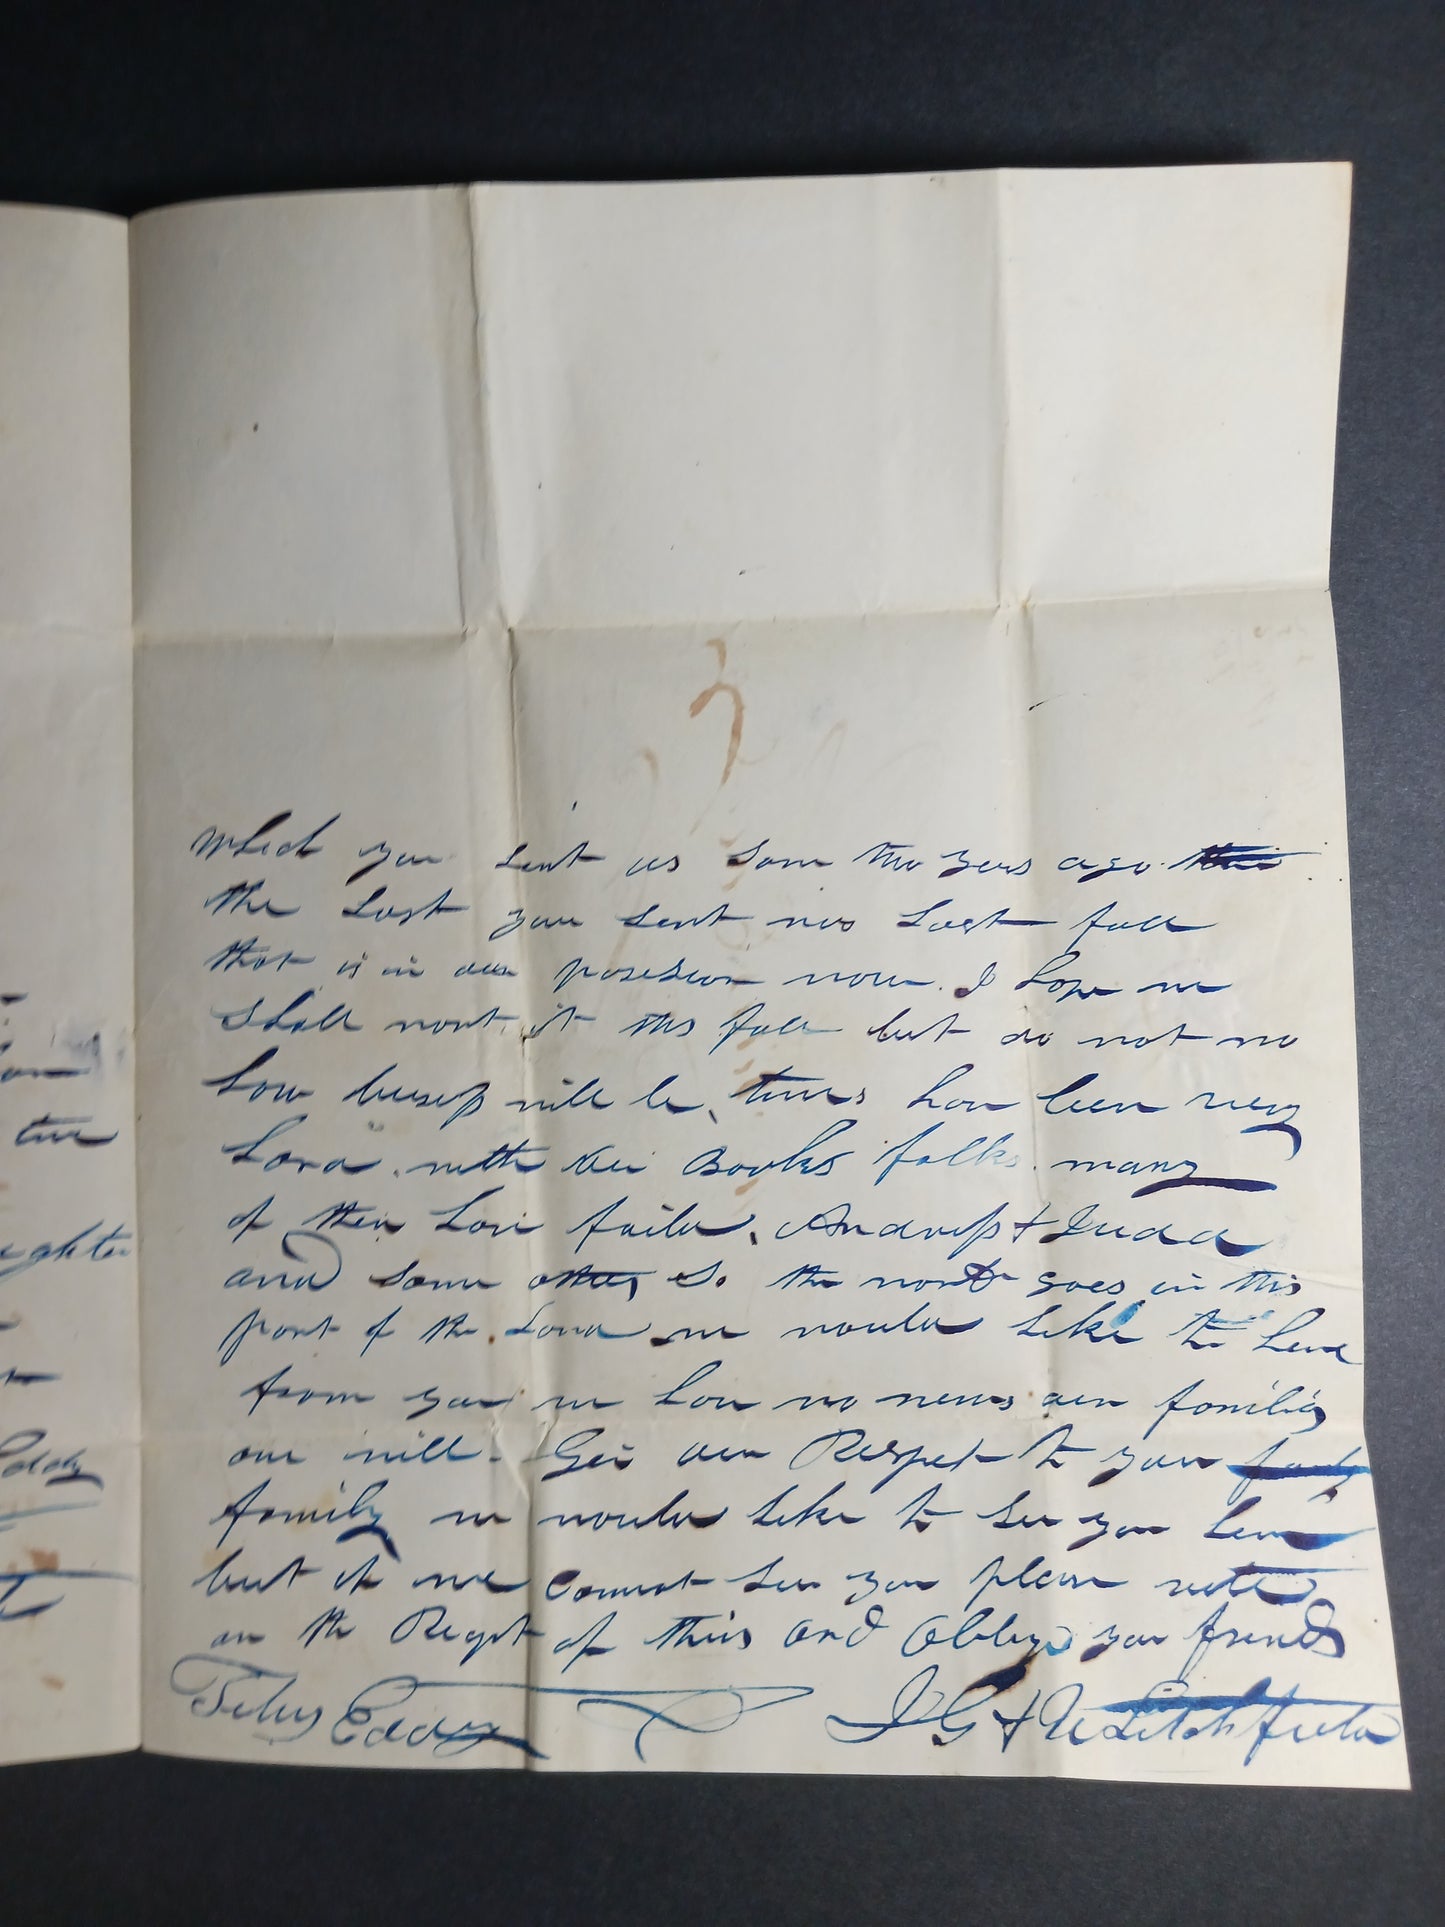 tive
eghter
Eddy
which you sent us som two years ago
the Last you sent was Last fall
that is in our posesion now. I hope we
shall wont it this fall but do not no
how buisness will be, times have been very
hard with the Books folks. many
of them have faild, Andross & Judd
and some others So the world goes in this
part of the Land we would like to hear
from you we have no news our families
are well. Give our Respect to your
family we would like to see you here
but if we cannot see you please write
on the Recept of this and Oblige your friends
Titus Eddy J G & A Litchfield